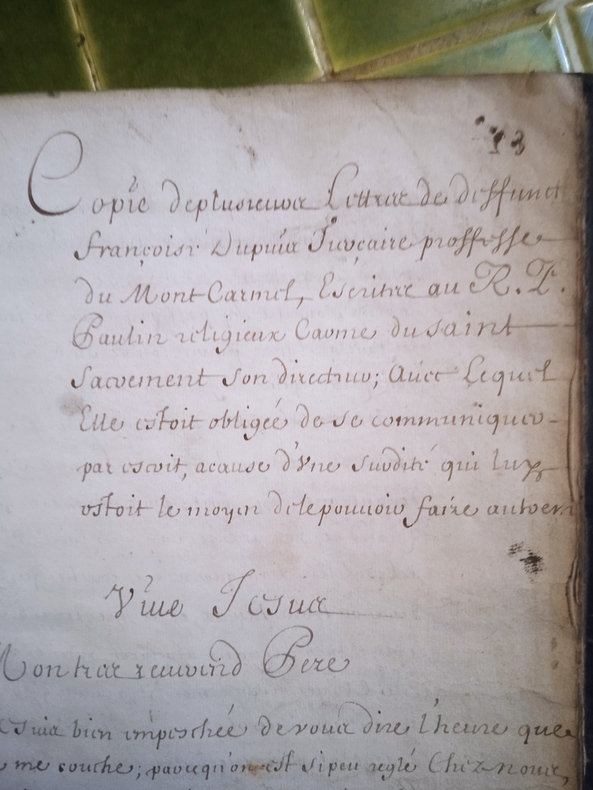 Copie de plusieurs Lettres de deffunct
Françoise Dupuis Tierçaire proffesse
du Mont Carmel, Escrites au R. P.
Paulin religieux Carme du saint
Sacrement son directeur; Avec Lequel
Elle estoit obligée de se communiquer
par escrit, a cause d'Une surdité qui luy
ostoit le moyen de le pouvoir faire autrem
Vive Jesus
Mon tres reverend Pere
suis bien empeschée de vous dire l'heure que
me couche; parcequ'on est si peu reglé Chez nous,